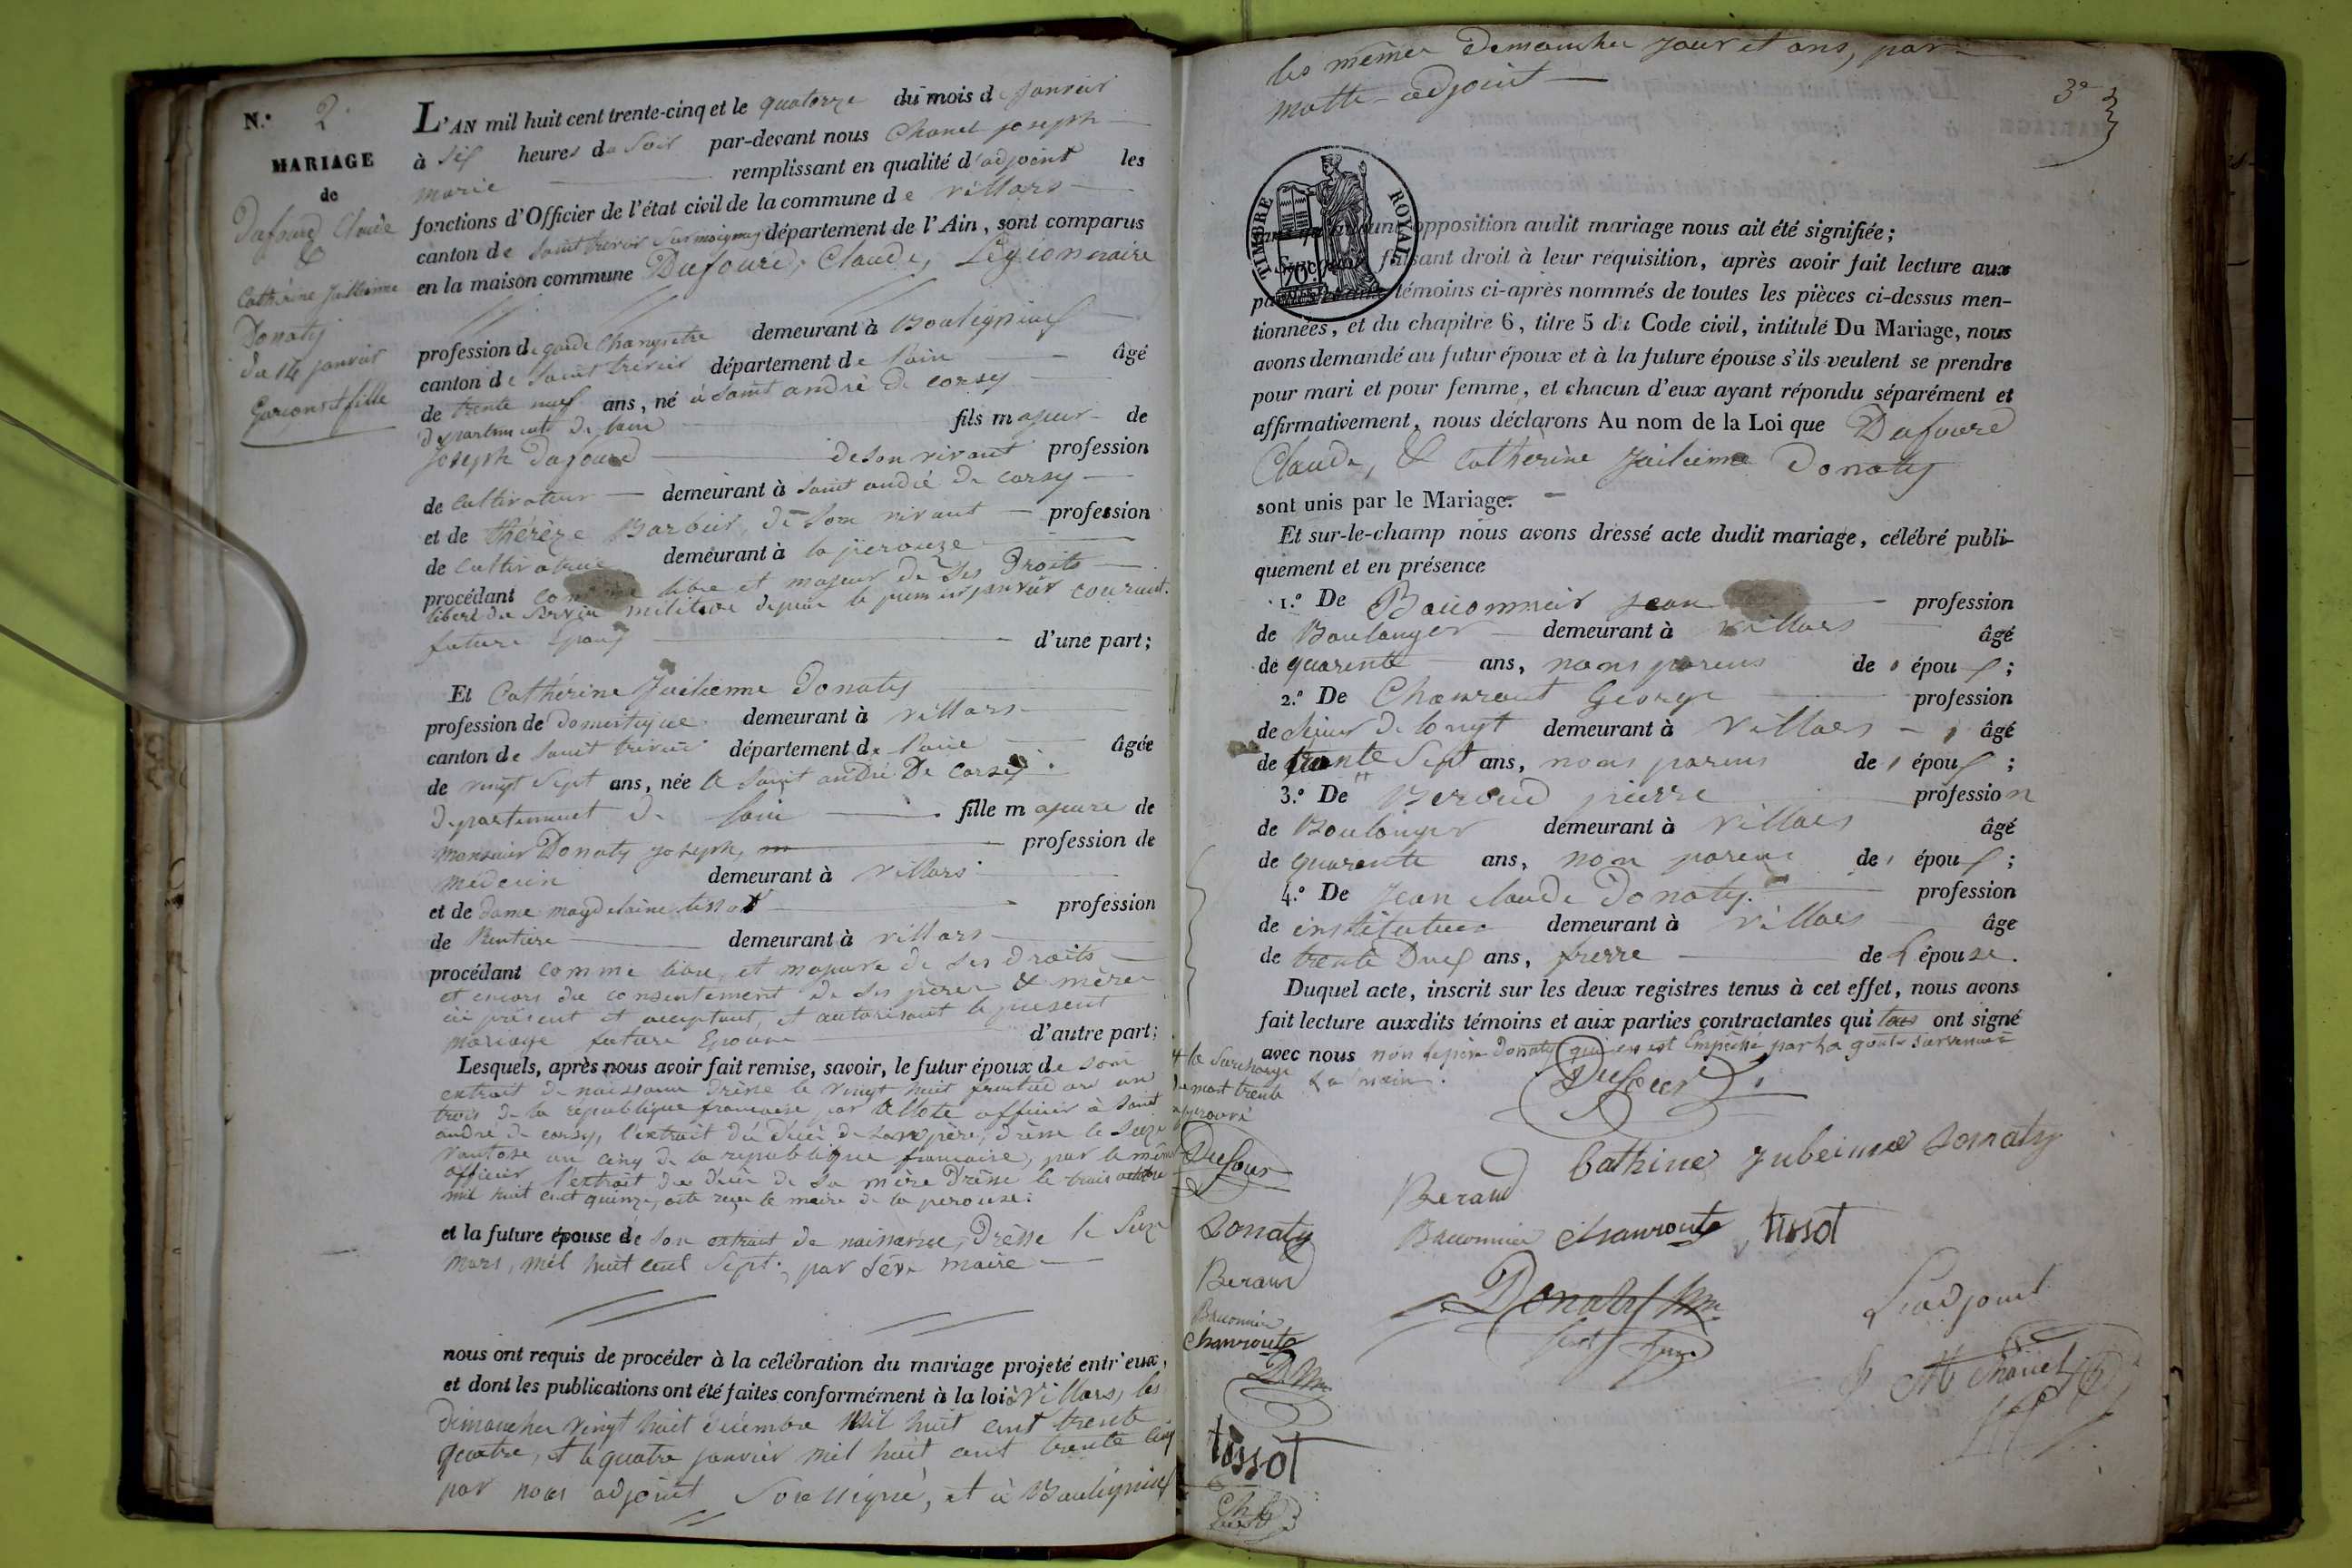 N.º 2.
MARIAGE
de
Dufourd Claude
&
Cathérine Juilienne
Donaty
du 14 janvier
Garçon et fille
L'AN mil huit cent trente-cinq et le quatorze du mois de Janvier
à six heures du Soir par-devant nous Chanel Joseph
marie remplissant en qualité d'adjoint les
fonctions d'Officier de l'état civil de la commune de villars
canton de Saint trivier Surmoignans département de l'Ain, sont comparus
en la maison commune Dufourd, Claude, Légionnaire
profession de garde Champetre demeurant à Bouligneux
canton de Saint trivier département de l'ain âgé
de trente neuf ans, né à saint andré de corsy
département de l'ain fils majeur de
Joseph Dufourd de son vivant profession
de Cultivateur demeurant à saint andré de corsy
et de thérèze Barbier, de son vivant profession
de Cultivatrice demeurant à la perouze
procédant comme libre et majeur de ses Droits
libéré du Service militaire depuis le premier janvier courant.
future Epoux d'une part;
Et Cathérine Juilienne Donaty
profession de domestique demeurant à villars
canton de Saint trivier département de l'ain âgée
de vingt Sept ans, née à Saint andré De Corsy
département de l'ain fille majeure de
Monsieur Donaty Joseph, profession de
médecin demeurant à villars
et de dame magdelaine tissot profession
de Rentière demeurant à villars
procédant comme libre, et majeure de ses droits
et encore du consentement de ses père & mère
ici présent et acceptant, et autorisant le présent
mariage future Epouse d'autre part;
Lesquels, après nous avoir fait remise, savoir, le futur époux de son
extrait de naissance dréssé le vingt huit fructidor an
trois de la république française par officier à Saint
andré de corsy, l'extrait du décè de son père, dréssé le Seize
vantose an cinq de la republique francaise, par le même
officier l'extrait du décè de sa mère Dréssé le trois octobre
mil huit cent quinze, acte reçu le maire de la perouse:
et la future épouse de son extrait de naissance, Dréssé le Six
Mars, mil huit cent Sept, par Sève maire
nous ont requis de procéder à la célébration du mariage projeté entr'eux,
et dont les publications ont été faites conformément à la loi à Villars, les
Dimanches vingt huit décembre mil huit cent trente
quatre, et le quatre janvier mil huit cent trente cinq
par nous adjoint Soussigné, et à Bouligneux
les mêmes Demanches jour et ans, par
matte adjoint
3e
TIMBRE ROYAL
70
opposition audit mariage nous ait été signifiée;
faisant droit à leur réquisition, après avoir fait lecture aux
témoins ci-après nommés de toutes les pièces ci-dessus men-
tionnées, et du chapitre 6, titre 5 du Code civil, intitulé Du Mariage, nous
avons demandé au futur époux et à la future épouse s'ils veulent se prendre
pour mari et pour femme, et chacun d'eux ayant répondu séparément et
affirmativement, nous déclarons Au nom de la Loi que Dufourd
Claude, & Cathérine Juilienne Donaty
sont unis par le Mariage.
Et sur-le-champ nous avons dressé acte dudit mariage, célébré publi-
quement et en présence
1.º De Baconnier Jean profession
de Boulanger demeurant à villars âgé
de quarente ans, nons parens de s époux;
2.º De Chamrout George profession
de demeurant à Villars âgé
de trente Sept ans, nons parens de s époux;
3.º De Beroud pierre profession
de Boulanger demeurant à villars âgé
de quarente ans, non parens de s époux;
4.º De Jean claude Donaty profession
de instituteur demeurant à Villars âge
de trente Deux ans, frerre de L'épouse.
Duquel acte, inscrit sur les deux registres tenus à cet effet, nous avons
fait lecture auxdits témoins et aux parties contractantes qui tous ont signé
avec nous non le père Donaty qui en est Empéché par la goute survenue à
La main.
+ la Surcharge
du mot trente
approuvé
Dufour
Donaty
Beraud
Baconnier
Chamrouts
DMm
tissot
Dufour
Cathine Jubeinne Donaty
Beraud
Baconnier Chamrouts tissot
Donaty
L'adjoint
Chanel